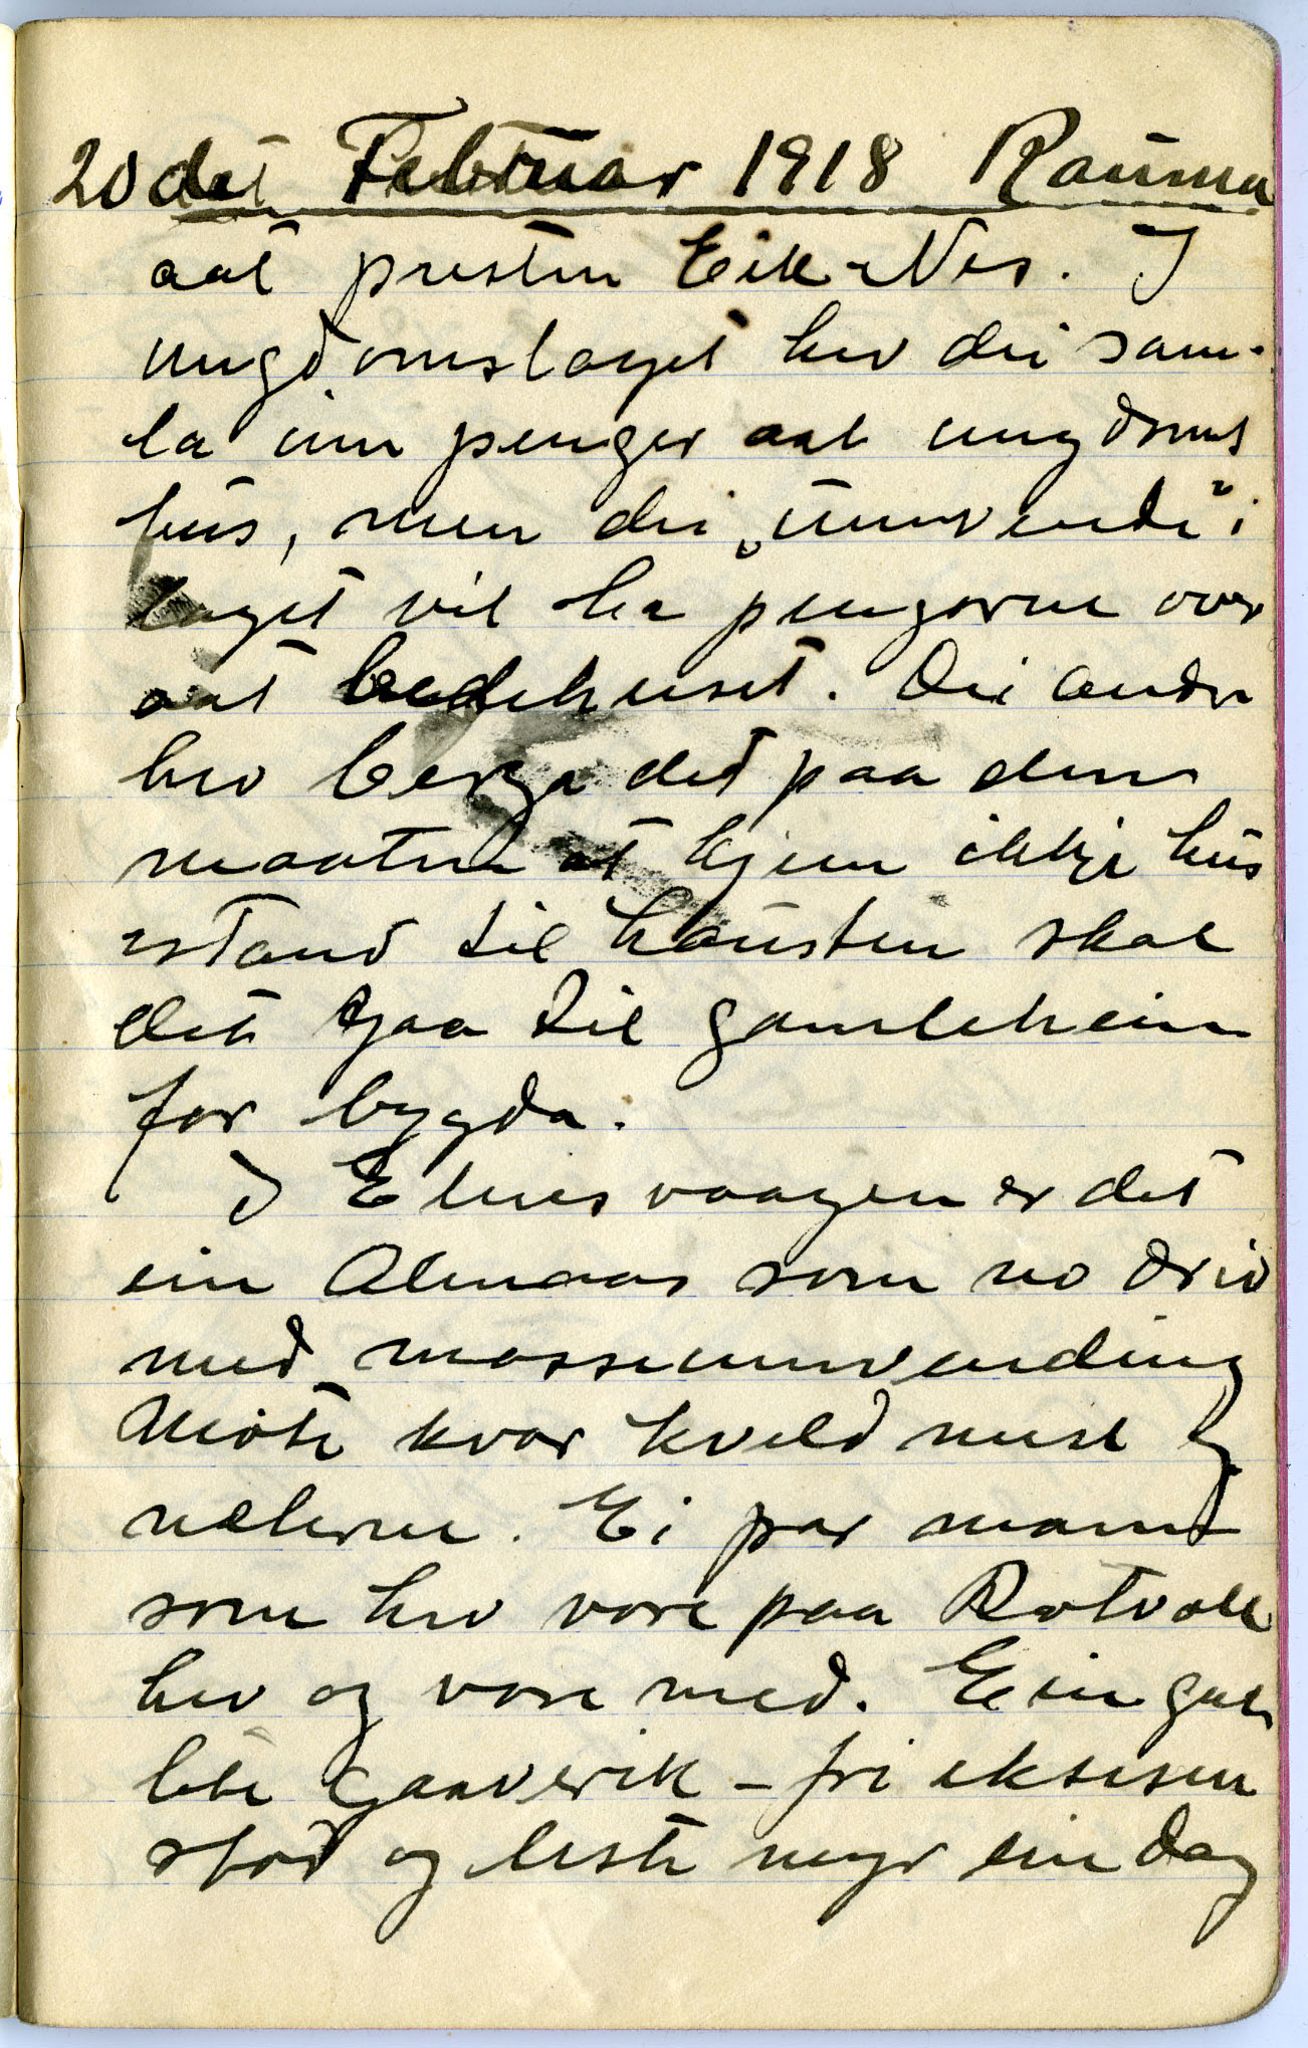 20det Februar 1918 Rauma
aat presten Eik-Nes. I
ungdomslaget hev dei sam-
la inn penger aat ungdoms
hus, men dei „umvende" i
laget vil ha pengarne over
aat bedehuset. Dei andre
hev berga det paa den
maaten at kjem ikkje hus
istand til hausten skal
det gaa til gamleheim
for bygda.
I Elnesvaagen er det
ein Almaas som no driv
med masseumvending
Møte kvar kveld mest og
nælerne. Ei par mann
som hev vore paa Rotvoll
hev og vore med. Ein gal
stod og leste upp ein dag